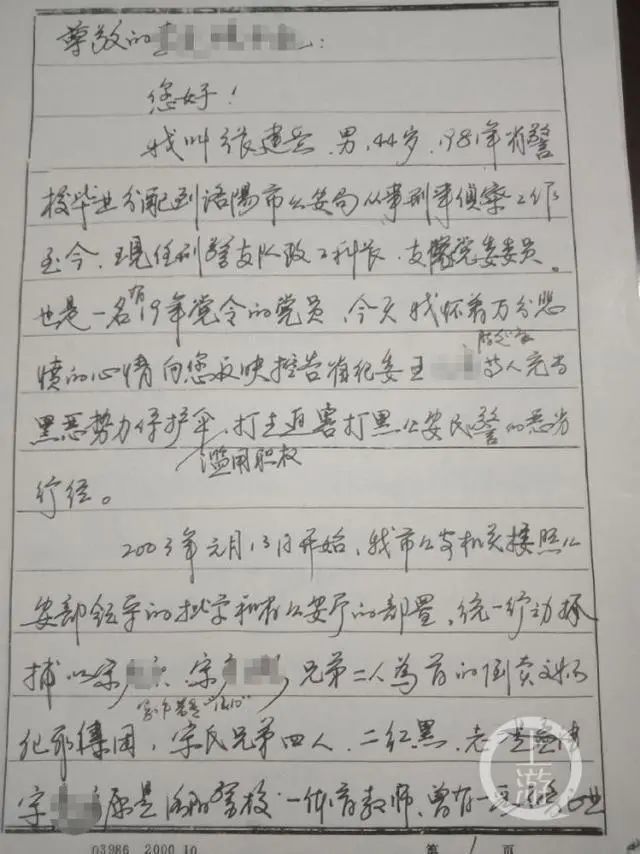 尊敬的
您好！
我叫张建 男，44岁，1981年省警
校毕业分配到洛阳市公安局从事刑事侦察工作
至今，现任刑警支队政工科长，支队党委委员。
也是一名有19年党令的党员，今天我怀着万分悲
愤的心情向您反映控告省纪委王 等人充当
黑恶势力保护伞，打击迫害打黑公安民警的恶劣
滥用职权
行径。
2003年元月13日开始，我市公安机关按照公
安部领导的批示和省公安厅的部署，统一行动抓
捕以宋 、宋 兄弟二人为首的倒卖文物
犯罪集团，宋氏兄弟四人，二红黑，老
宋 原是洛阳警校一体育教师，曾有一
上游
03986 2000.10 第 1 页